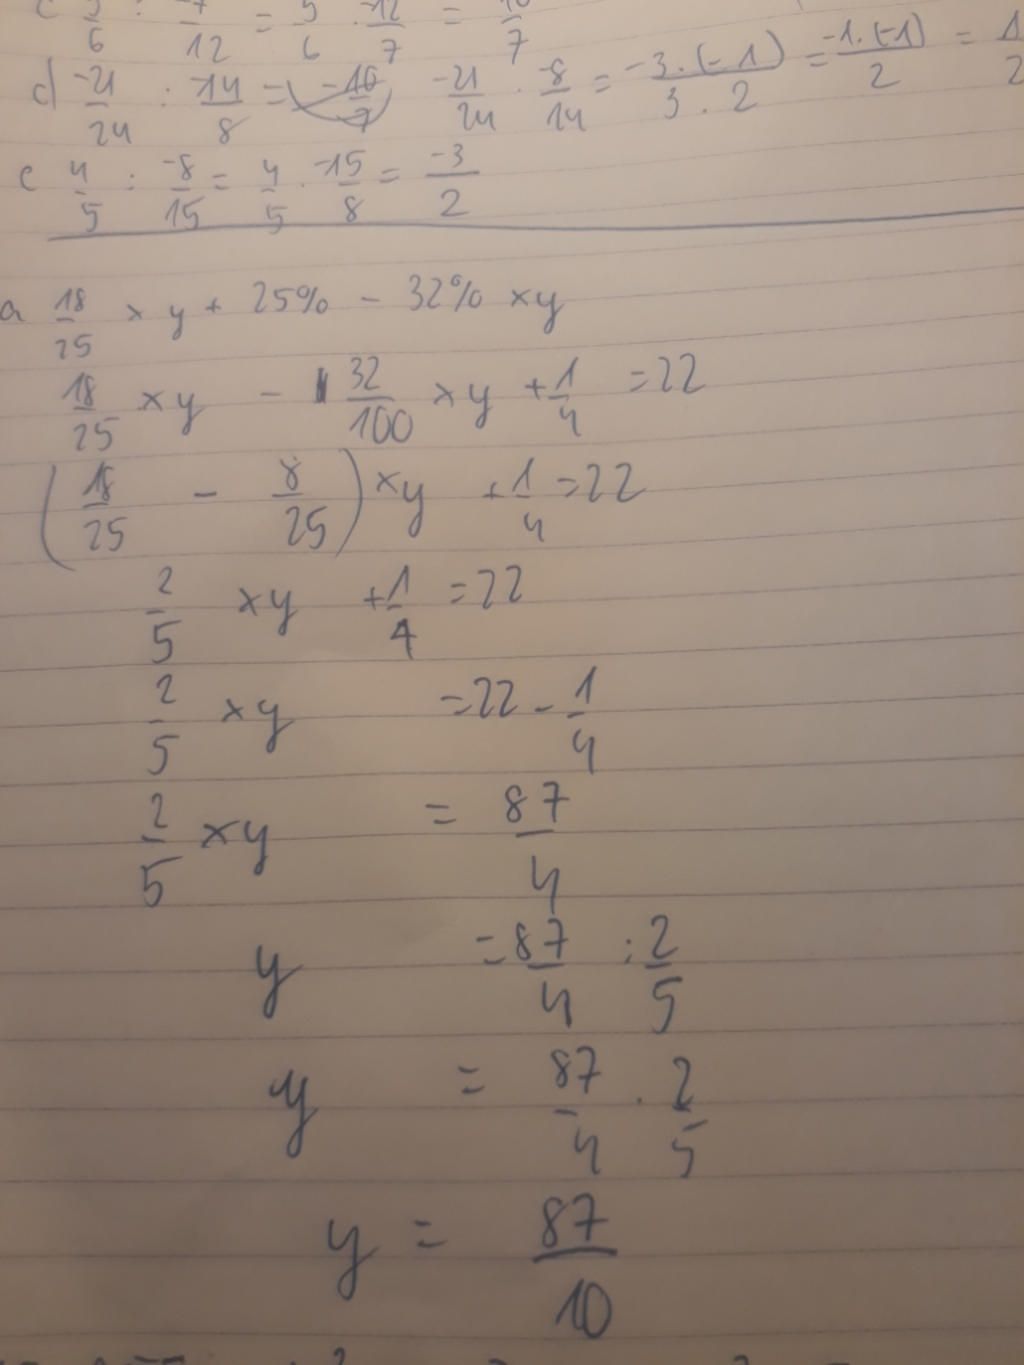 c 5/6 : -7/12 = 5/6 . -12/7 = 10/7
d) -21/24 : -14/8 = -10/7 -21/24 . -8/14 = -3.(-1)/3.2 = -1.(-1)/2 = 1/2
c 4/5 : -8/15 = 4/5 . -15/8 = -3/2
a 18/25 x y + 25% - 32% x y
18/25 x y - 32/100 x y + 1/4 = 22
(18/25 - 8/25) x y + 1/4 = 22
2/5 x y + 1/4 = 22
2/5 x y = 22 - 1/4
2/5 x y = 87/4
y = 87/4 : 2/5
y = 87/4 . 2/5
y = 87/10